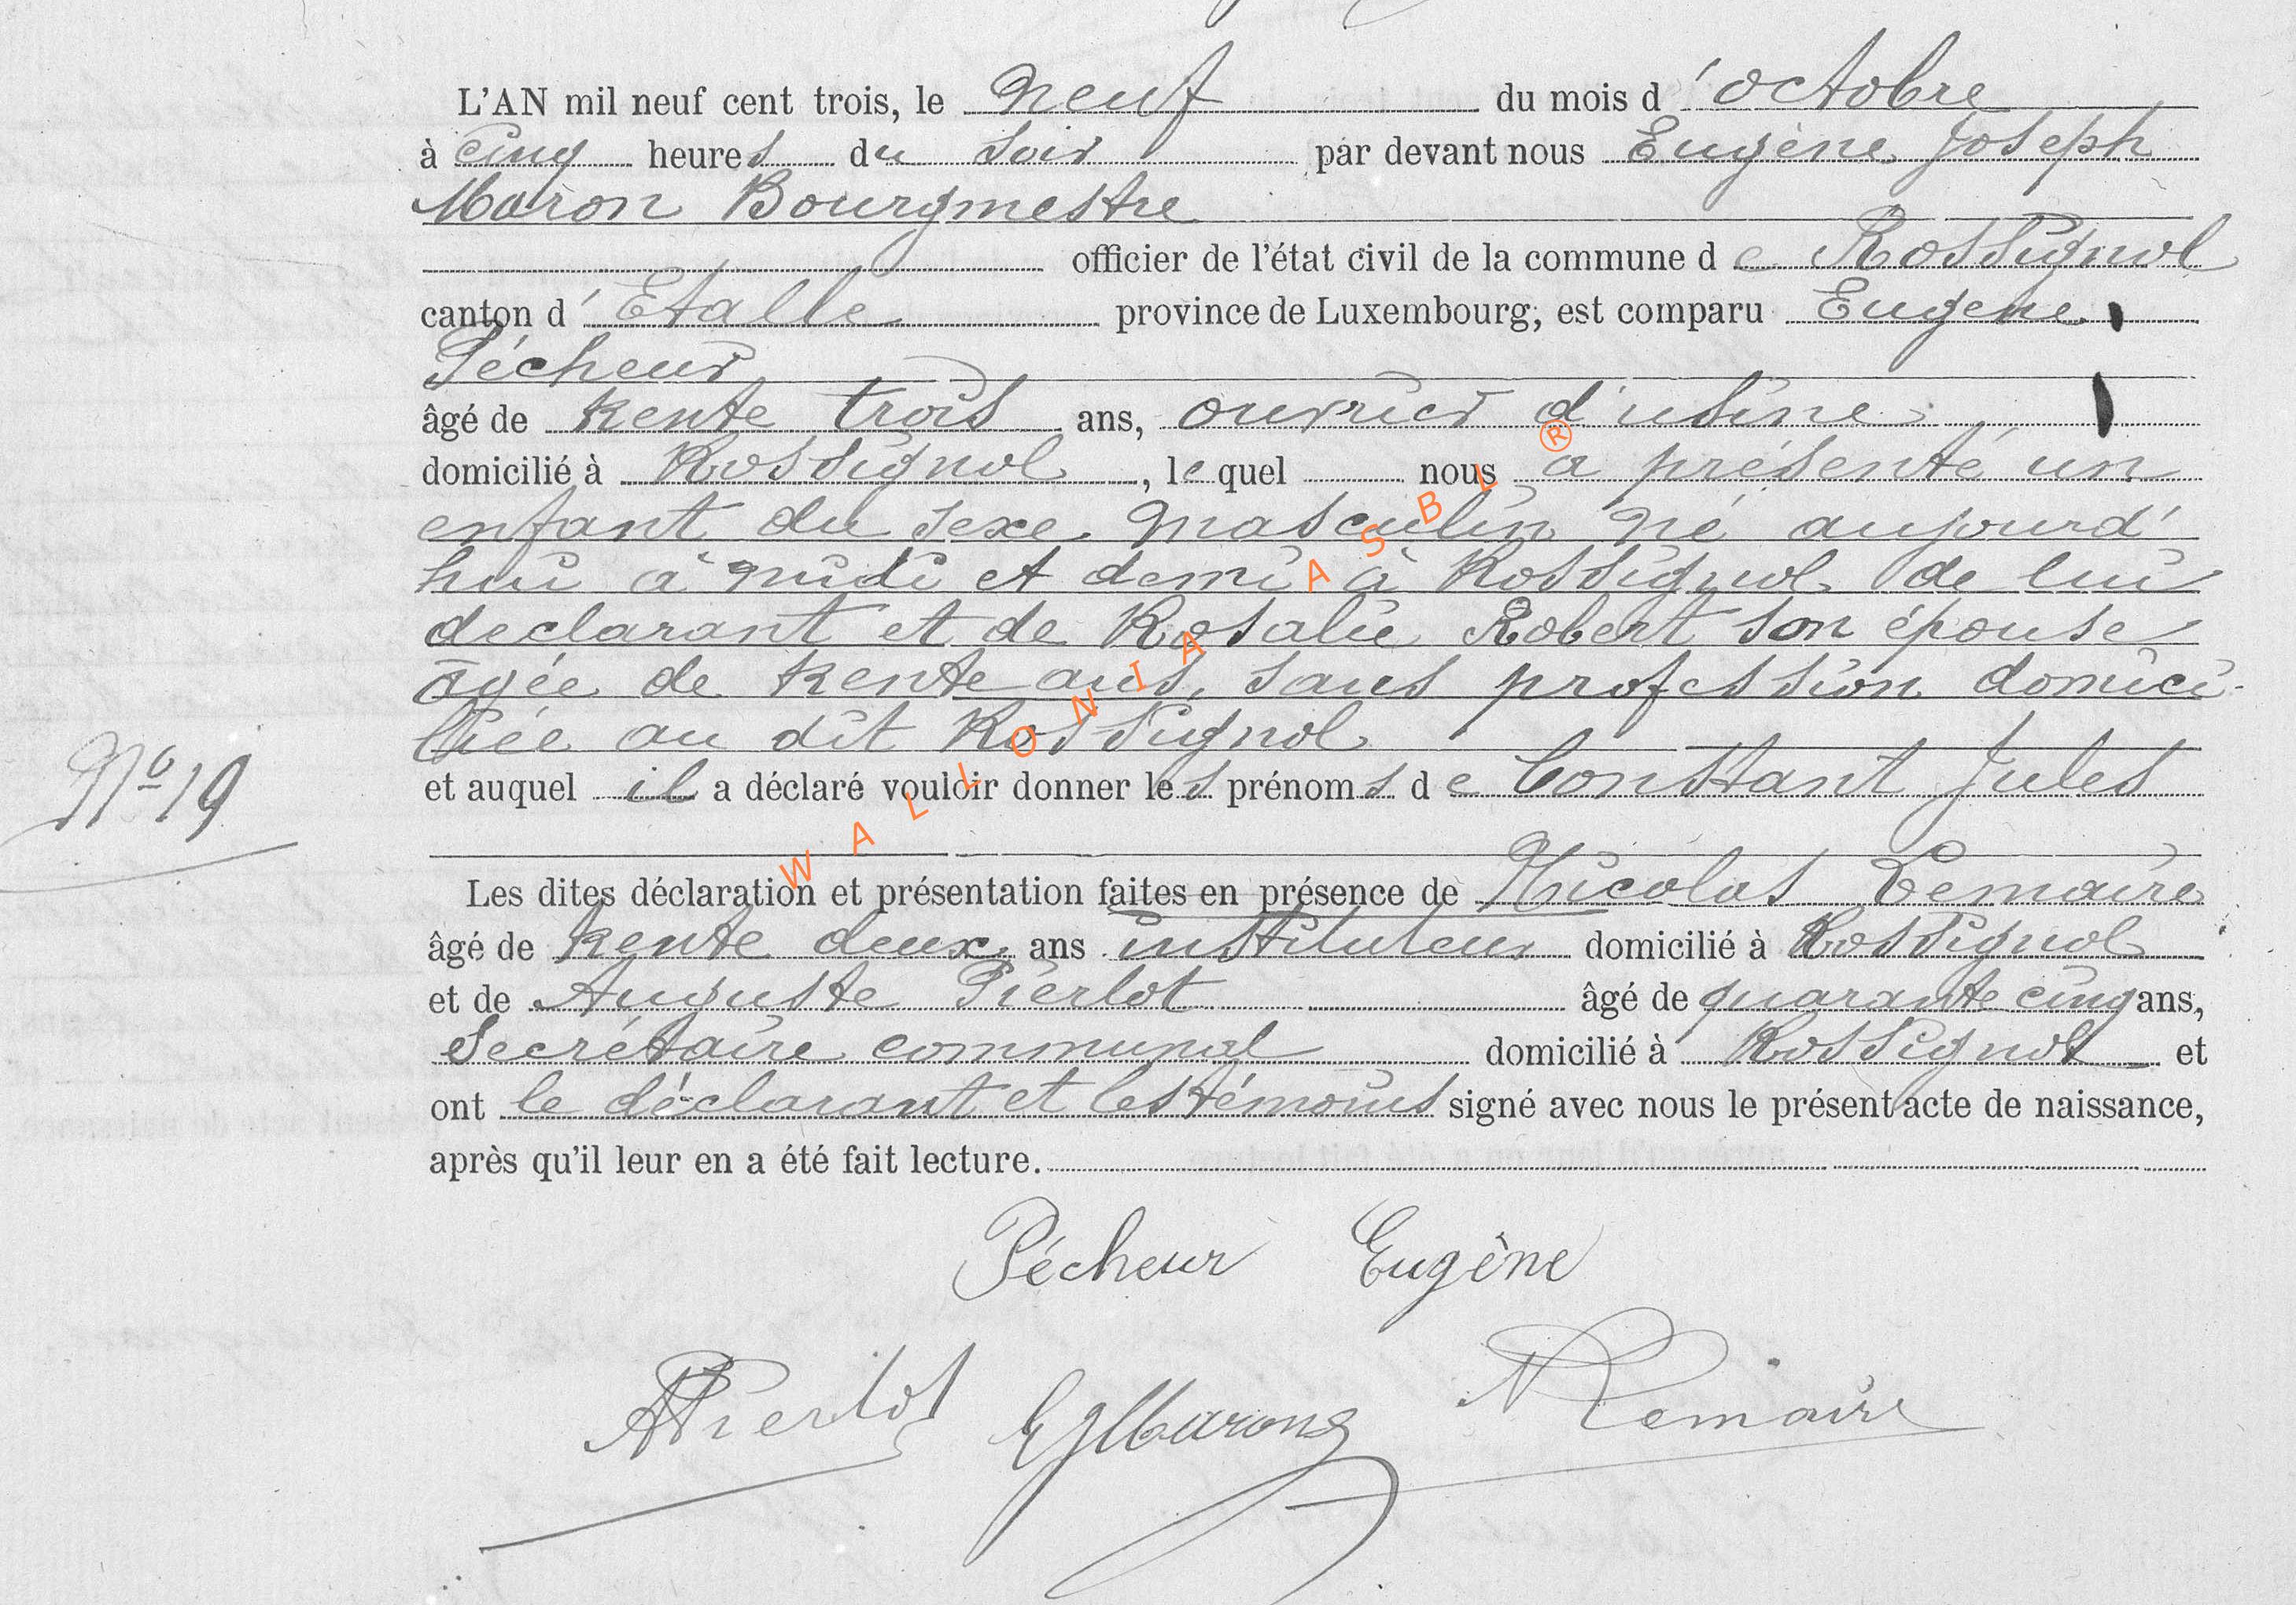 L'AN mil neuf cent trois, le neuf du mois d'octobre
à cinq heures du soir par devant nous Eugène Joseph
Maron Bourgmestre
officier de l'état civil de la commune de Rossignol
canton d'Etalle province de Luxembourg, est comparu Eugene
Pécheur
âgé de trente trois ans, ouvrier d'usine
domicilié à Rossignol, lequel nous a présenté un
enfant du sexe masculin né aujourd'
hui à midi et demi à Rossignol de lui
declarant et de Rosalie Robert son épouse
agée de trente ans, sans profession domici-
liée au dit Rossignol
No 19
et auquel il a déclaré vouloir donner les prénoms de Constant Jules
Les dites déclaration et présentation faites en présence de Nicolas Lemaire
âgé de trente deux ans instituteur domicilié à Rossignol
et de Auguste Pierlot âgé de quarante cinq ans,
Secrétaire communal domicilié à Rossignol et
ont le déclarant et les témoins signé avec nous le présent acte de naissance,
après qu'il leur en a été fait lecture.
Pécheur Eugène
APierlot EJMaron NLemaire
WALLONIA ASBL ®